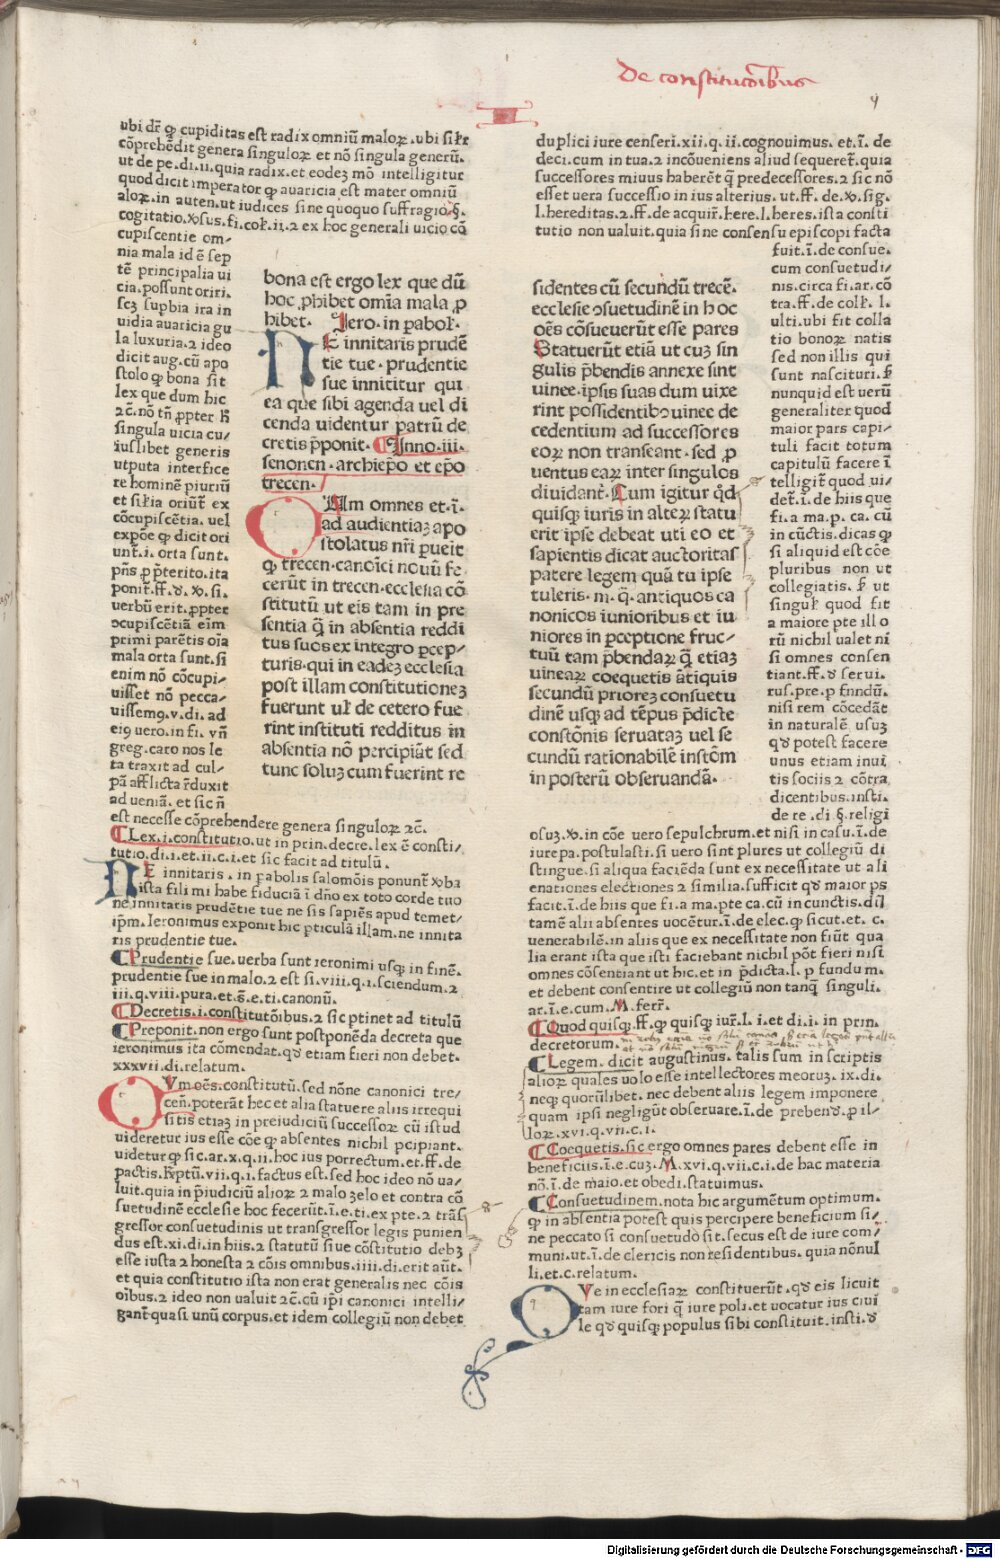 De constitucōibus
4
I
ubi dr̄ ꝙ cupiditas est radix omniū maloꝝ. ubi sil̄r
cōprehēdit genera singuloꝝ et nō singula generū.
ut de pe. di. ii. quia radix. et eodeꝫ mō intelligitur
quod dicit imperator ꝙ avaricia est mater omniū
aloꝝ. in auten. ut iudices sine quoquo suffragio. §.
cogitatio. ꝟsus. fi. col. ii. 2 ex hoc generali uicio cō
cupiscentie om-
nia mala id ē sep
tē principalia ui
cia. possunt oriri.
scꝫ supbia ira in
uidia auaricia gu
la luxuria. 2 ideo
dicit aug. cū apo
stolo ꝙ bona sit
lex que dum hic
2c̄. nō tn̄ ꝓpter h̄
singula uicia cu/
iuslibet generis
utputa interfice
re hominē piuriū
et sil̄ia oriūt ex
cōcupiscētia. uel
expōe ꝙ dicit ori
unt. i. orta sunt.
pn̄s ꝓ p̄terito. ita
ponit. ff. ꝺ. ꝟ. si.
uerbū erit. ꝓpter
ↄcupiscētiā eim
primi parētis oīa
mala orta sunt. si
enim nō cōcupi/
uisset nō pecca/
uissemꝰ. v. di. ad
eiꝰ uero. in fi. vn̄
greg. caro nos le
ta traxit ad cul/
pā afflicta r̄duxit
ad ueniā. et sic n̄
est necesse cōprehendere genera singuloꝝ 2c̄.
¶ Lex. i. constitutio. ut in prin. decre. lex ē consti/
tutio. di. i. et. ii. c. i. et sic facit ad titulū.
NE innitaris. in pabolis salomōis ponunt̄ ꝟba
ista fili mi habe fiduciā ī dn̄o ex toto corde tuo
ne innitaris prudētie tue ne sis sapiēs apud temet/
ip̄m. Ieronimus exponit hic pticulā illam. ne innita
ris prudentie tue.
¶ Prudentie sue. uerba sunt ieronimi usqꝫ in finē.
prudentie sue in malo. 2 est si. viii. q. i. sciendum. 2
iii. q. viii. pura. et. s̄. e. ti. canonū.
¶ Decretis. i. constitutōibus. 2 sic ptinet ad titulū
¶ Preponit. non ergo sunt postponēda decreta que
ieronimus ita cōmendat. qꝺ etiam fieri non debet.
xxxvii. di. relatum.
QVm oēs. constitutū. sed nōne canonici tre/
cen̄. poterāt hec et alia statuere aliis irrequi
sitis etiaꝫ in preiudiciū successoꝝ cū istud
uideretur ius esse cōe ꝙ absentes nichil pcipiant.
uidetur ꝙ sic. ar. x. q. ii. hoc ius porrectum. et. ff. de
pactis. h̄ptū. vii. q. i. factus est. sed hoc ideo nō ua/
luit. quia in p̄iudiciū alioꝝ 2 malo zelo et contra cō
suetudinē ecclesie hoc fecerūt. ī. e. ti. ex pte. 2 trāsḡ
gressor consuetudinis ut transgressor legis punien
dus est. xi. di. in hiis. 2 statutū siue cōstitutio debꝫ
esse iusta 2 honesta 2 cōis omnibus. iiii. di. erit aūt.
et quia constitutio ista non erat generalis nec cōis
oībus. 2 ideo non ualuit 2c̄. cū ip̄i canonici intelli/
gant̄ quasi unū corpus. et idem collegiū non debet
bona est ergo lex que dū
hoc ꝓhibet omīa mala ꝓ
hibet. Iero. in pabol̄.
NE innitaris prudē
tie tue. prudentie
sue innititur qui
ea que sibi agenda uel di
cenda uidentur patrū de
cretis p̄ponit. ¶ Inno. iii.
senonen. archiep̄o et ep̄o
trecen.
QUm omnes et. ī.
ad audientiaꝫ apo
stolatus nr̄i pueit
ꝙ trecen. canōici nouū fe
cerūt in trecen. ecclesia cō
stitutū ut eis tam in pre
sentia q̄ in absentia reddi
tus suos ex integro pcep/
turis. qui in eadeꝫ ecclesia
post illam constitutioneꝫ
fuerunt ul̄ de cetero fue
rint instituti redditus in
absentia nō percipiāt sed
tunc soluꝫ cum fuerint re
duplici iure censeri. xii. q. ii. cognouimus. et. ī. de
deci. cum in tua. 2 incōueniens aliud sequeret̄. quia
successores miuus haberēt q̄ predecessores. 2 sic nō
esset uera successio in ius alterius. ut. ff. de. ꝟ. sig.
l. hereditas. 2. ff. de acquir̄. here. l. heres. ista consti
tutio non ualuit. quia sine consensu episcopi facta
fuit. ī. de consue.
cum consuetudi/
nis. circa fi. ar. cō
tra. ff. de col̄. l.
ulti. ubi fit colla
tio bonoꝝ natis
sed non illis qui
sunt nascituri. s̄
nunquid est uerū
generaliter quod
maior pars capi/
tuli facit totum
capitulū facere ī
telligit̄ quod ui/
det̄. ī. de hiis que
fi. a ma. p. ca. cū
in cūctis. dicas ꝙ
si aliquid est cōe
pluribus non ut
collegiatis. s̄ ut
singul̄ quod fit
a maiore pte illo
rū nichil ualet ni
si omnes consen
tiant. ff. ꝺ serui.
rus. pre. p fundū.
nisi rem cōcedāt
in naturalē usuꝫ
qꝺ potest facere
unus etiam inui
tis sociis 2 cōtra
dicentibus. insti.
de re. di. §. religi
osuꝫ. ꝟ. in cōe uero sepulchrum. et nisi in casu. ī. de
iure pa. postulasti. si uero sint plures ut collegiū di
stingue. si aliqua faciēda sunt ex necessitate ut ali
enationes electiones 2 similia. sufficit qꝺ maior ps
facit. ī. de hiis que fi. a ma. pte ca. cū in cunctis. dū
tamē alii absentes uocētur. ī. de elec. ꝙ sicut. et. c.
uenerabilē. in aliis que ex necessitate non fiūt qua
lia erant ista que isti faciebant nichil pōt fieri nisi
omnes cōsentiant ut hic. et in p̄dicta. l. p fundum.
et debent consentire ut collegiū non tanqꝫ singuli.
ar. ī. e. cum. M. ferr̄.
¶ Quod quisqꝫ. ff. ꝙ quisqꝫ iur̄. l. i. et di. i. in prin.
decretorum.
¶ Legem. dicit augustinus. talis sum in scriptis
alioꝝ quales uolo esse intellectores meoruꝫ. ix. di.
neqꝫ quorūlibet. nec debent aliis legem imponere
quam ipsi negligūt obseruare. ī. de prebenꝺ. p il/
loꝝ. xvi. q. vii. c. i.
¶ Coequetis. sic ergo omnes pares debent esse in
beneficiis. ī. e. cuꝫ. M. xvi. q. vii. c. i. de hac materia
nō. ī. de maio. et obedi. statuimus.
¶ Consuetudinem. nota hic argumētum optimum.
ꝙ in absentia potest quis percipere beneficium si/
ne peccato si consuetudo sit. secus est de iure com/
muni. ut. ī. de clericis non residentibus. quia nōnul
li. et. c. relatum.
QVe in ecclesiaꝝ constituerūt. qꝺ eis licuit
tam iure fori q̄ iure poli. et uocatur ius ciui
le qꝺ quisqꝫ populus sibi constituit. insti. ꝺ
sidentes cū secundū trecē.
ecclesie ↄsuetudinē in hoc
oēs cōsueuerūt esse pares
Statuerūt etiā ut cuꝫ sin
gulis p̄bendis annexe sint
uinee. ipsis suas dum uixe
rint possidentibꝰ uinee de
cedentium ad successores
eoꝝ non transeant. sed ꝓ
uentus eaꝝ inter singulos
diuidant̄. Cum igitur qꝺ
quisqꝫ iuris in alteꝝ statu
erit ipse debeat uti eo et
sapientis dicat auctoritas
patere legem quā tu ipse
tuleris. m. q̄. antiquos ca
nonicos iunioribus et iu/
niores in pceptione fruc/
tuū tam p̄bendaꝝ q̄ etiaꝫ
uineaꝝ coequetis ātiquis
secundū prioreꝫ consuetu
dinē usqꝫ ad tēpus p̄dicte
constōnis seruataꝫ uel se
cundū rationabilē instōm
in posterū obseruandā.
Digitalisierung gefördert durch die Deutsche Forschungsgemeinschaft - DFG